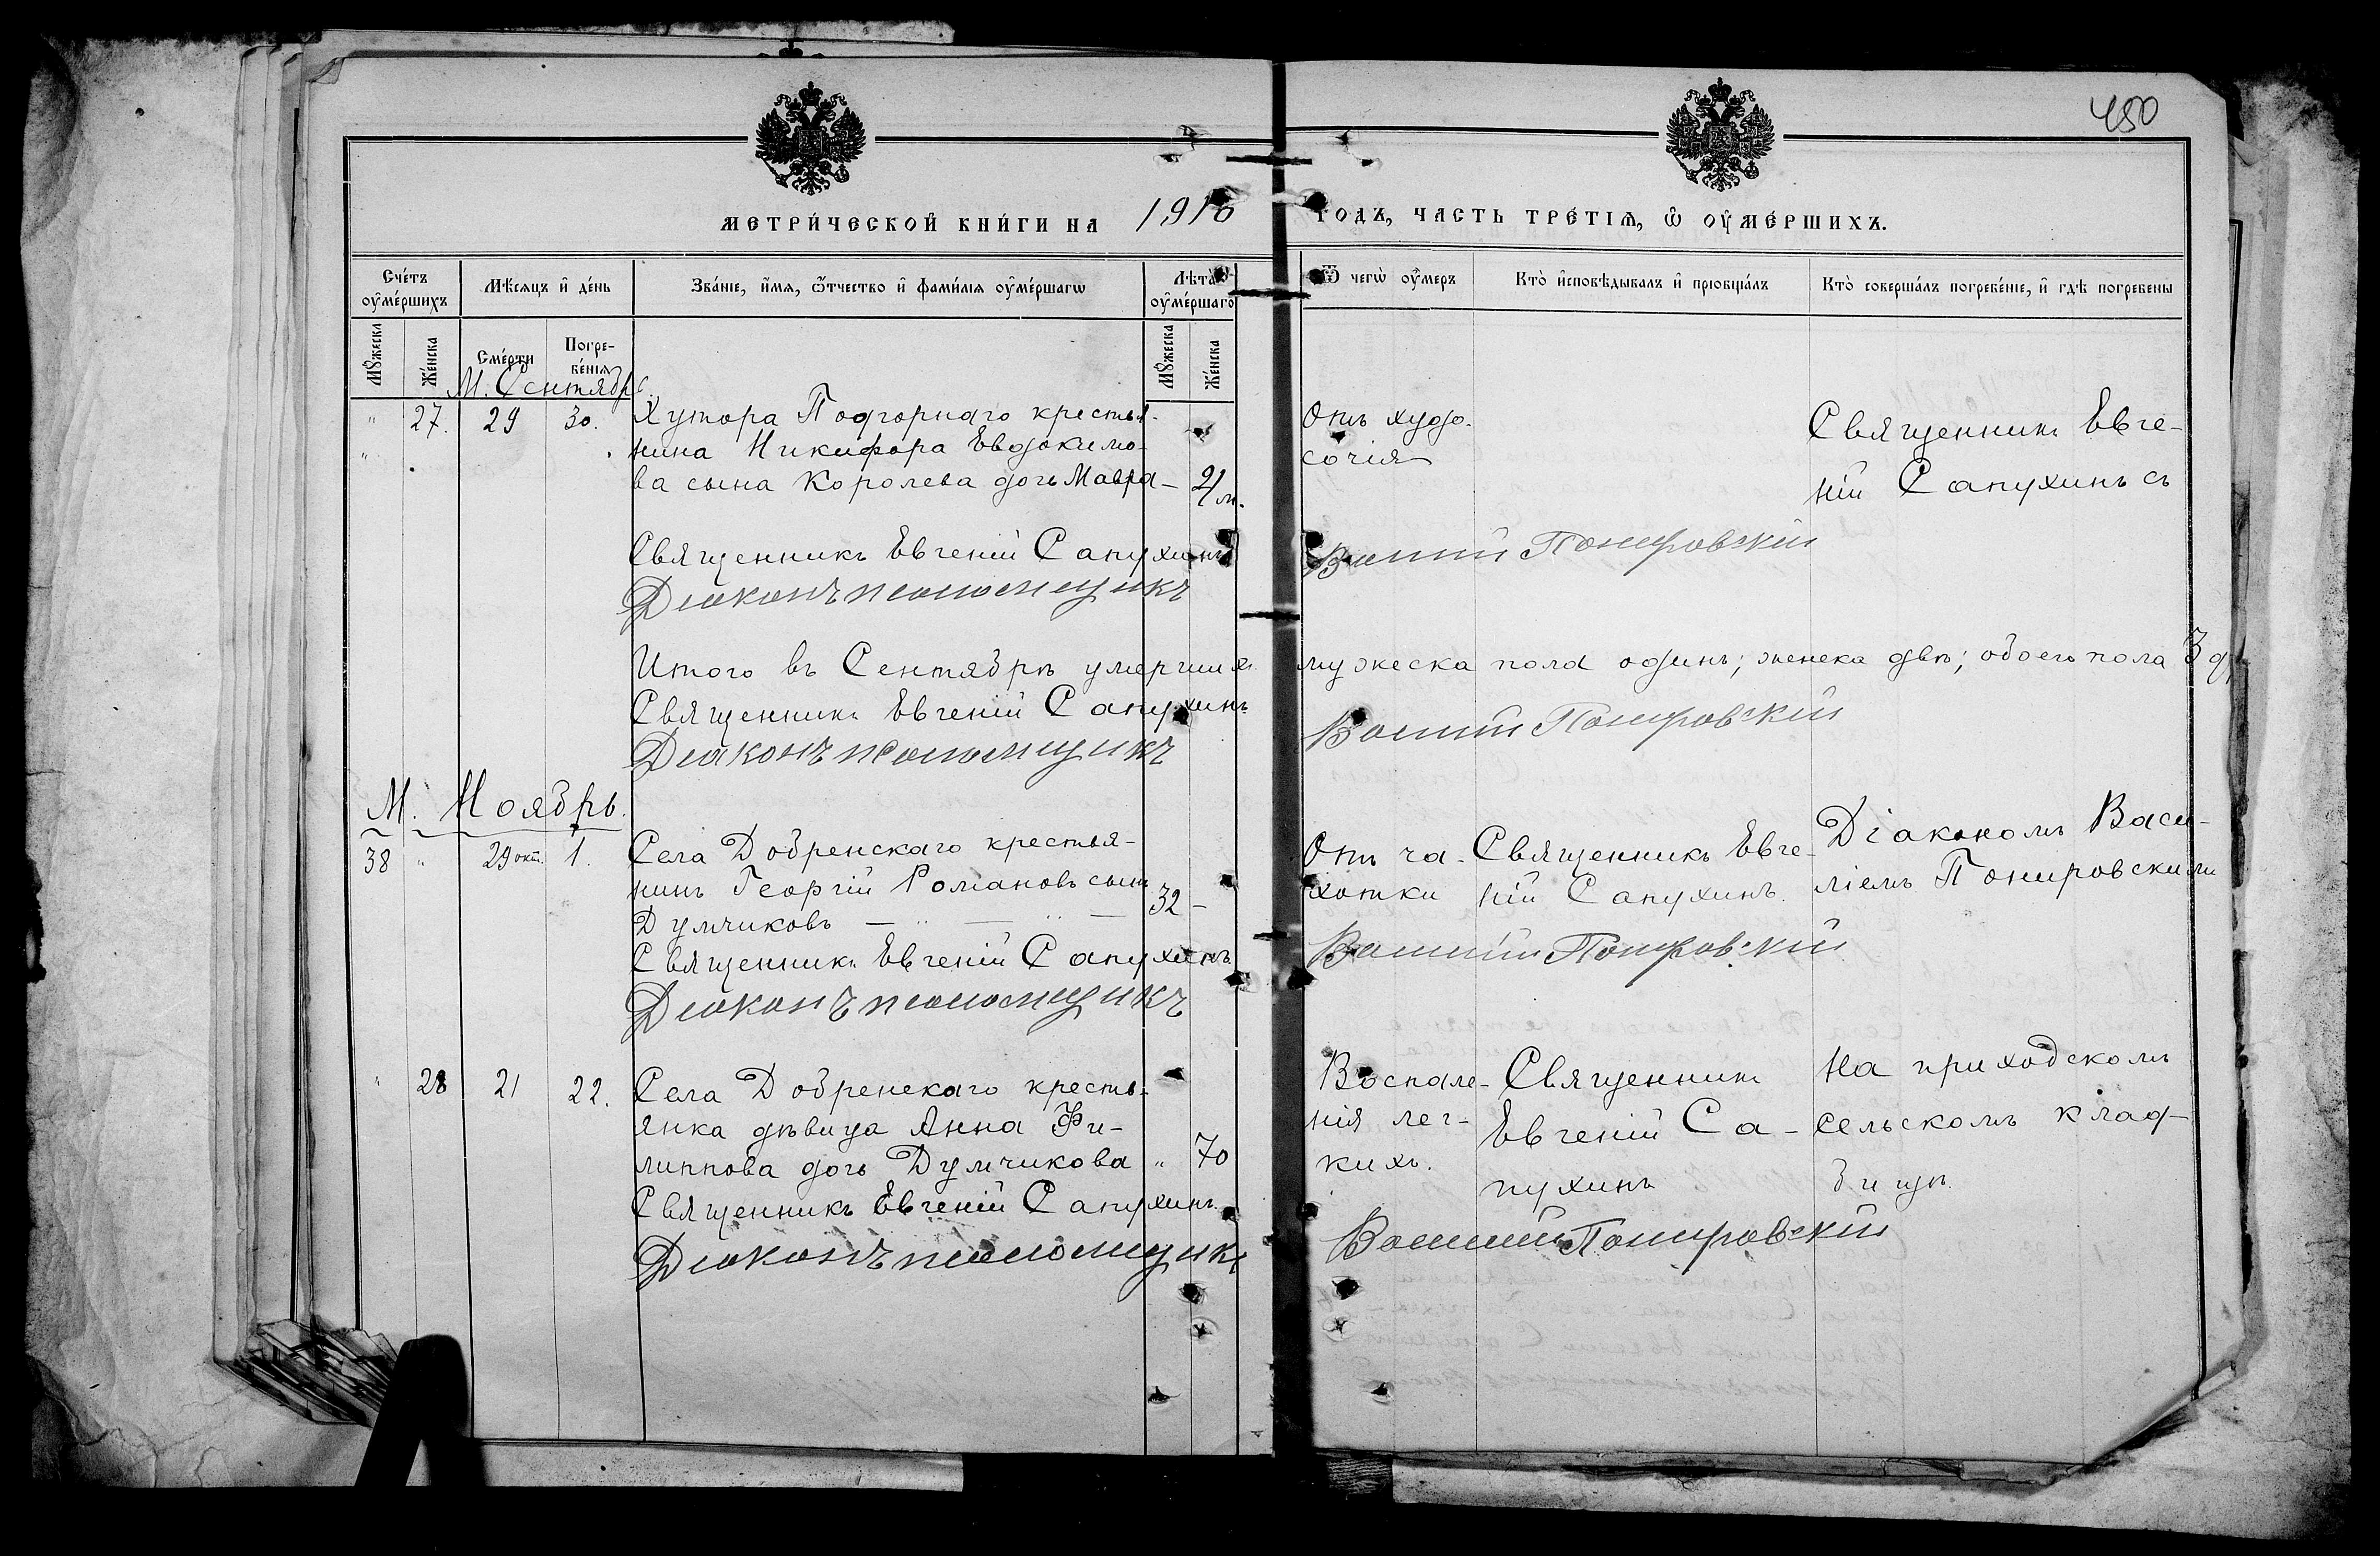 450
МЕТРИ́ЧЕСКОЙ КНИ́ГИ НА 1916 ГОДЪ, ЧАСТЬ ТРЕ́ТІѦ, Ѡ ОУМЕ́РШИХЪ.
Сче́тъ оуме́ршихъ
Мѣсѧцъ и де́нь
Зва́ніе, и́мѧ, ѻ́тчество и фами́лія оуме́ршагѡ
Лѣта оуме́ршаго
Ѿ чегѡ̀ оу́меръ
Кто̀ исповѣ́дывалъ и пріобща́лъ
Кто̀ соверша́лъ погребе́ніе, и гдѣ̀ погребены
Мꙋ́жеска
Же́нска
Сме́рти
Погребе́нія
Мꙋ́жеска
Же́нска
М. Сентябрь
" 27. 29 30. Хутора Подгорнаго крестья-
нина Никифора Евдокимо-
ва сына Королева дочь Мавра — 2/м.
Отъ худо-
сочія
Священникъ Евге-
ній Сапухинъ съ
Священникъ Евгеній Сапухинъ
Діаконъ псаломщикъ Василій Понировскій
Итого въ Сентябрѣ умершихъ мужеска пола одинъ; женска двѣ; обоего пола 3 д.
Священникъ Евгеній Сапухинъ
Діаконъ псаломщикъ Василій Понировскій
М. Ноябрь.
38 " 29 окт. 1. Села Добренскаго крестья-
нинъ Георгій Романовъ сынъ
Думчиковъ — " — " — 32 —
Отъ ча-
хотки
Священникъ Евге-
ній Сапухинъ.
Діакономъ Васи-
ліемъ Понировскимъ
Священникъ Евгеній Сапухинъ.
Діаконъ псаломщикъ Василій Понировскій
" 28 21 22. Села Добренскаго кресть-
янка дѣвица Анна Фи-
липпова дочь Думчикова " 70
Воспале-
нія лег-
кихъ.
Священникъ
Евгеній Са-
пухинъ
На приходскомъ
сельскомъ клад-
бищѣ.
Священникъ Евгеній Сапухинъ.
Діаконъ псаломщикъ Василій Понировскій